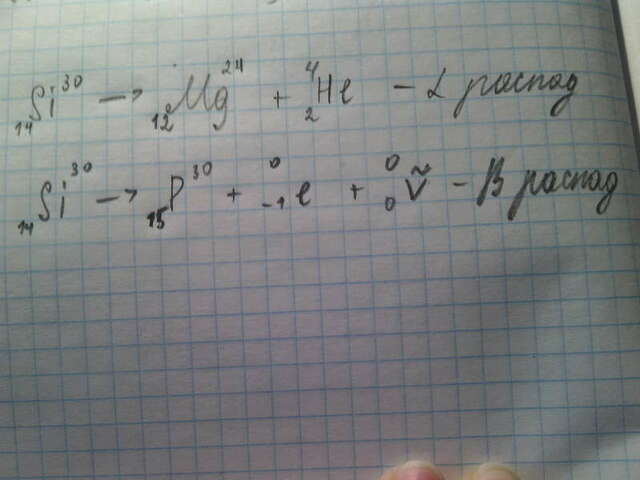 ₁₄Si³⁰ → ₁₂Mg²⁴ + ⁴₂He – α распад
₁₄Si³⁰ → ₁₅P³⁰ + ⁰₋₁e + ⁰₀ṽ – β распад